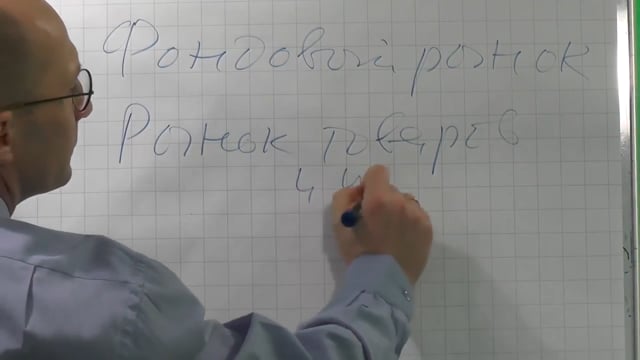 Фондовый рынок
Рынок товаров